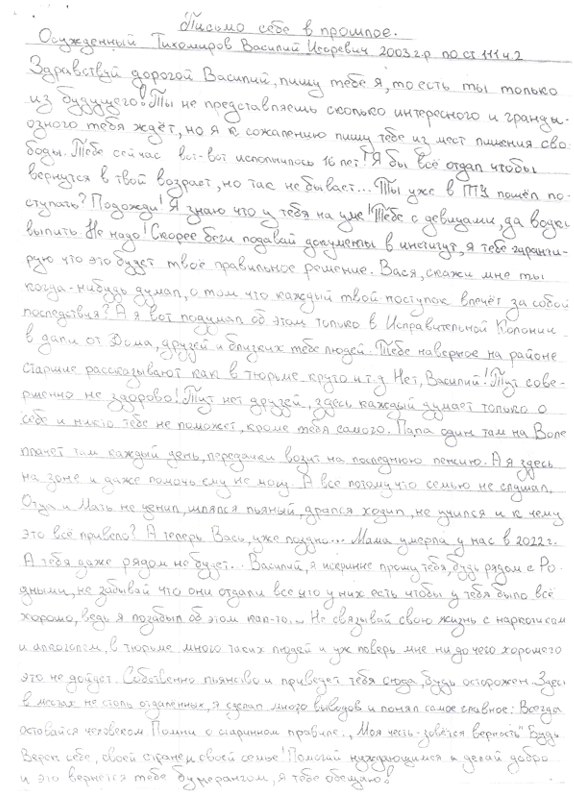 Письмо себе в прошлое.
Осужденный Тихомиров Василий Игоревич 2003 г.р по ст 111 ч.2
Здравствуй дорогой Василий, пишу тебе я, то есть ты только
из будущего! Ты не представляешь сколько интересного и гранди-
озного тебя ждёт, но я к сожалению пишу тебе из мест лишения сво-
боды. Тебе сейчас вот-вот исполнилось 16 лет! Я бы всё отдал чтобы
вернутся в твой возраст, но так не бывает... Ты уже в ПТУ пошёл по-
ступать? Подожди! Я знаю что у тебя на уме! Тебе с девицами, да водки
выпить. Не надо! Скорее беги подавай документы в институт, я тебе гаранти-
рую что это будет твоё правильное решение. Вася, скажи мне ты
когда-нибудь думал, о том что каждый твой поступок влечёт за собой
последствия? А я вот подумал об этом только в Исправительной Колонии
в дали от Дома, друзей и близких тебе людей. Тебе наверное на районе
старшие рассказывают как в тюрьме круто и т.д Нет, Василий! Тут сове-
ршенно не здорово! Тут нет друзей, здесь каждый думает только о
себе и никто тебе не поможет, кроме тебя самого. Папа один там на Воле
плачет там каждый день, передачки возит на последнюю пенсию. А я здесь
на зоне и даже помочь ему не могу. А все потому что семью не слушал,
Отца и Мать не ценил, шлялся пьяный, дрался ходил, не учился и к чему
это всё привело? А теперь Вась, уже поздно... Мама умерла у нас в 2022 г.
А тебя даже рядом не будет... Василий, я искренне прошу тебя, будь рядом с Ро-
дными, не забывай что они отдали все что у них есть чтобы у тебя было всё
хорошо, ведь я позабыл об этом как-то... Не связывай свою жизнь с наркотиком
и алкоголем, в тюрьме много таких людей и уж поверь мне ни до чего хорошего
это не дойдет. Собственно пьянство и приведет тебя сюда, будь осторожен. Здесь
в местах не столь отдаленных, я сделал много выводов и понял самое главное: Всегда
оставайся человеком Помни о старинном правиле „Моя честь-зовётся верность" Будь
Верен себе, своей стране и своей семье! Помогай нуждающимся и делай добро
и это вернется тебе бумерангом, я тебе обещаю!